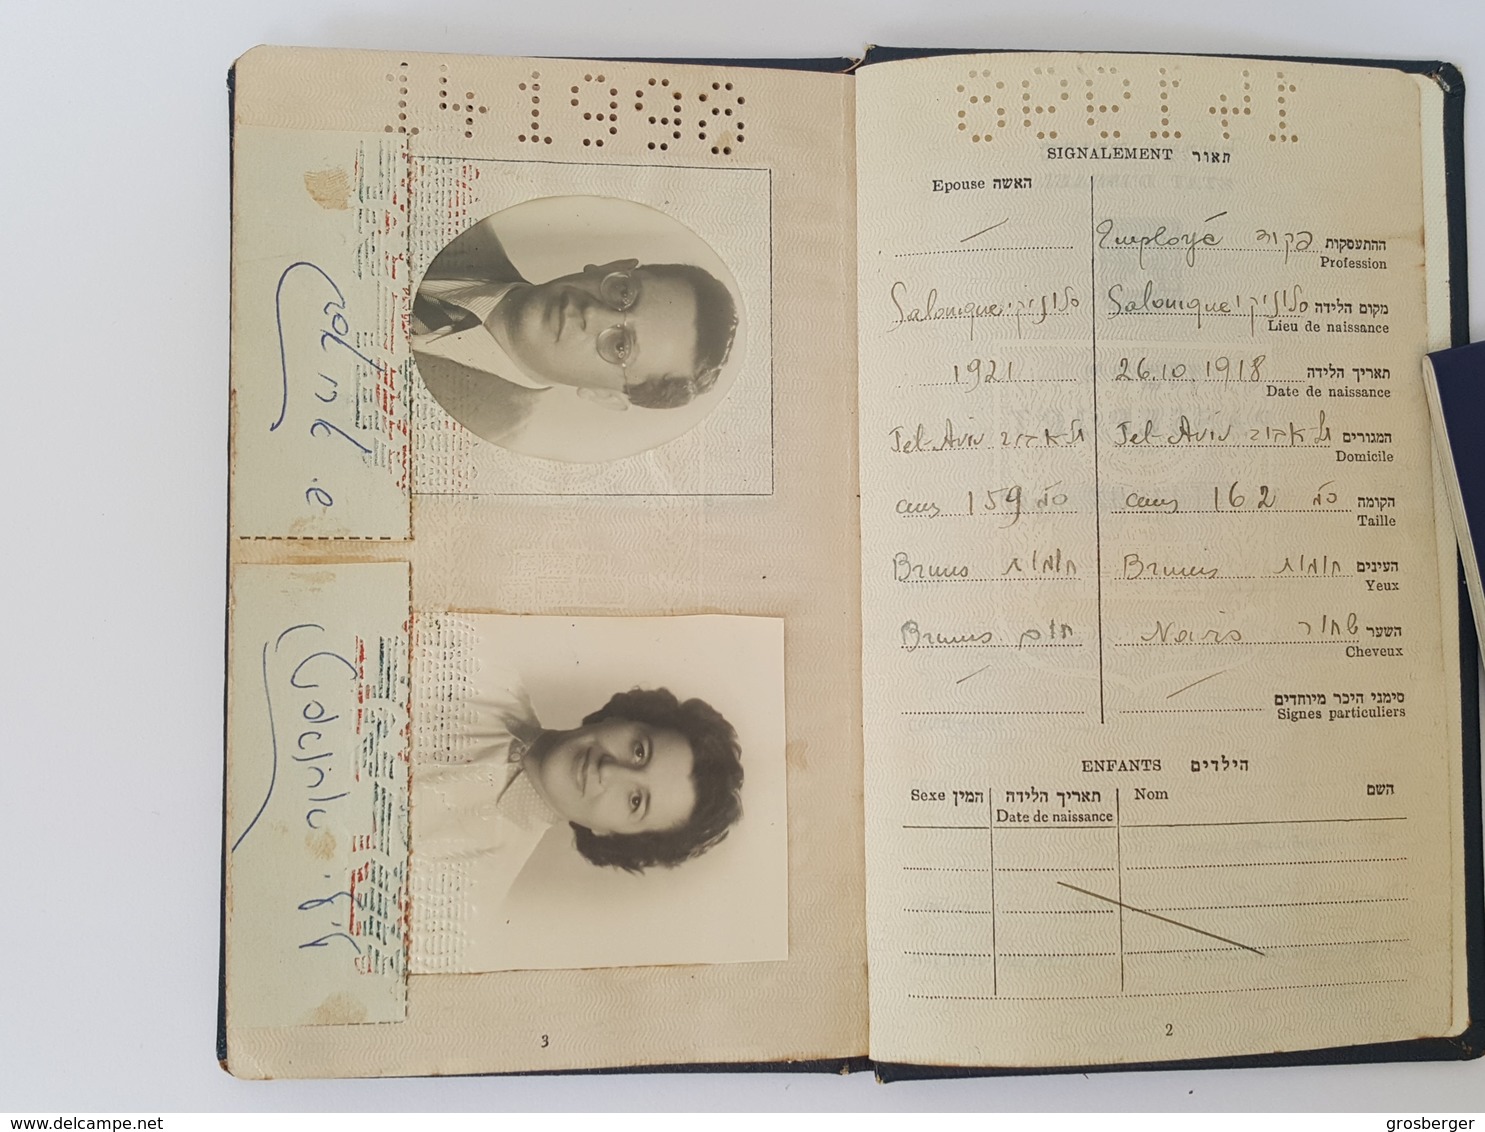 141998
SIGNALEMENT תאור
Epouse האשה
Employé פקיד ההתעסקות
Profession
Salonique סלוניקי Salonique סלוניקי מקום הלידה
Lieu de naissance
1921 26.10.1918 תאריך הלידה
Date de naissance
Tel-Aviv תל-אביב Tel-Aviv תל-אביב המגורים
Domicile
cms 159 ס"מ cms 162 ס"מ הקומה
Taille
Bruns חומות Bruns חומות העינים
Yeux
Bruns חום Noirs שחור השער
Cheveux
סימני היכר מיוחדים
Signes particuliers
ENFANTS הילדים
Sexe המין תאריך הלידה Nom השם
Date de naissance
3
2
delcampe.net
grosberger